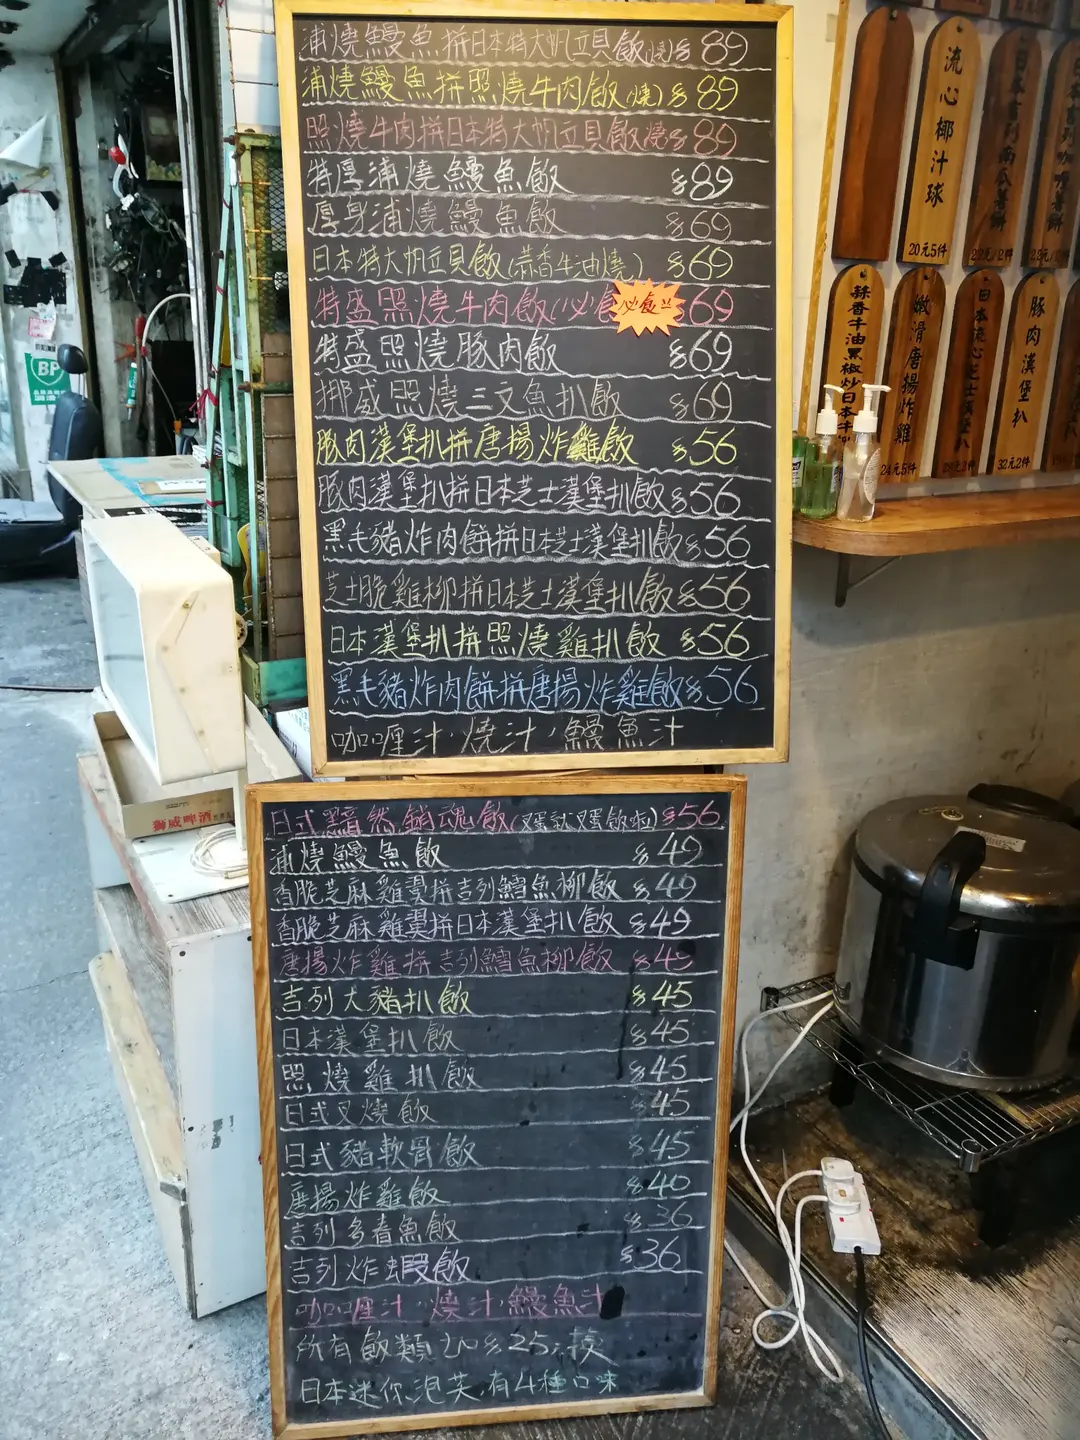 浦燒鰻魚拼日本特大帆立貝飯(燒)$89
浦燒鰻魚拼照燒牛肉飯(燒)$89
照燒牛肉拼日本特大帆立貝飯燒$89
特厚浦燒鰻魚飯 $89
厚身浦燒鰻魚飯 $69
日本特大帆立貝飯(蒜香牛油燒) $69
特盛照燒牛肉飯(必食 必食!! 69
特盛照燒豚肉飯 $69
挪威照燒三文魚扒飯 $69
豚肉漢堡扒拼唐揚炸雞飯 $56
豚肉漢堡扒拼日本芝士漢堡扒飯$56
黑毛豬炸肉餅拼日本芝士漢堡扒飯$56
芝士脆雞柳拼日本芝士漢堡扒飯$56
日本漢堡扒拼照燒雞扒飯 $56
黑毛豬炸肉餅拼唐揚炸雞飯$56
咖喱汁,燒汁,鰻魚汁
日式黯然銷魂飯(叉蛋飯 $56
浦燒鰻魚飯 $49
香脆芝麻雞翼拼吉列鱈魚柳飯 $49
香脆芝麻雞翼拼日本漢堡扒飯 $49
唐揚炸雞拼吉列鱈魚柳飯
吉列大豬扒飯 $45
日本漢堡扒飯 $45
照燒雞扒飯 $45
日式叉燒飯 $45
日式豬軟骨飯 $45
唐揚炸雞飯 $40
吉列多春魚飯 $36
吉列炸蝦飯 $36
咖喱汁,燒汁,鰻魚汁
所有飯類加$25
日本迷你泡芙,有4種口味
流心椰汁球
20元5件
22元/2件
蒜香牛油黑椒炒日本牛
嫩滑唐揚炸雞
24元5件
日本流心芝士漢堡扒
豚肉漢堡扒
32元2件
BP
獅威啤酒